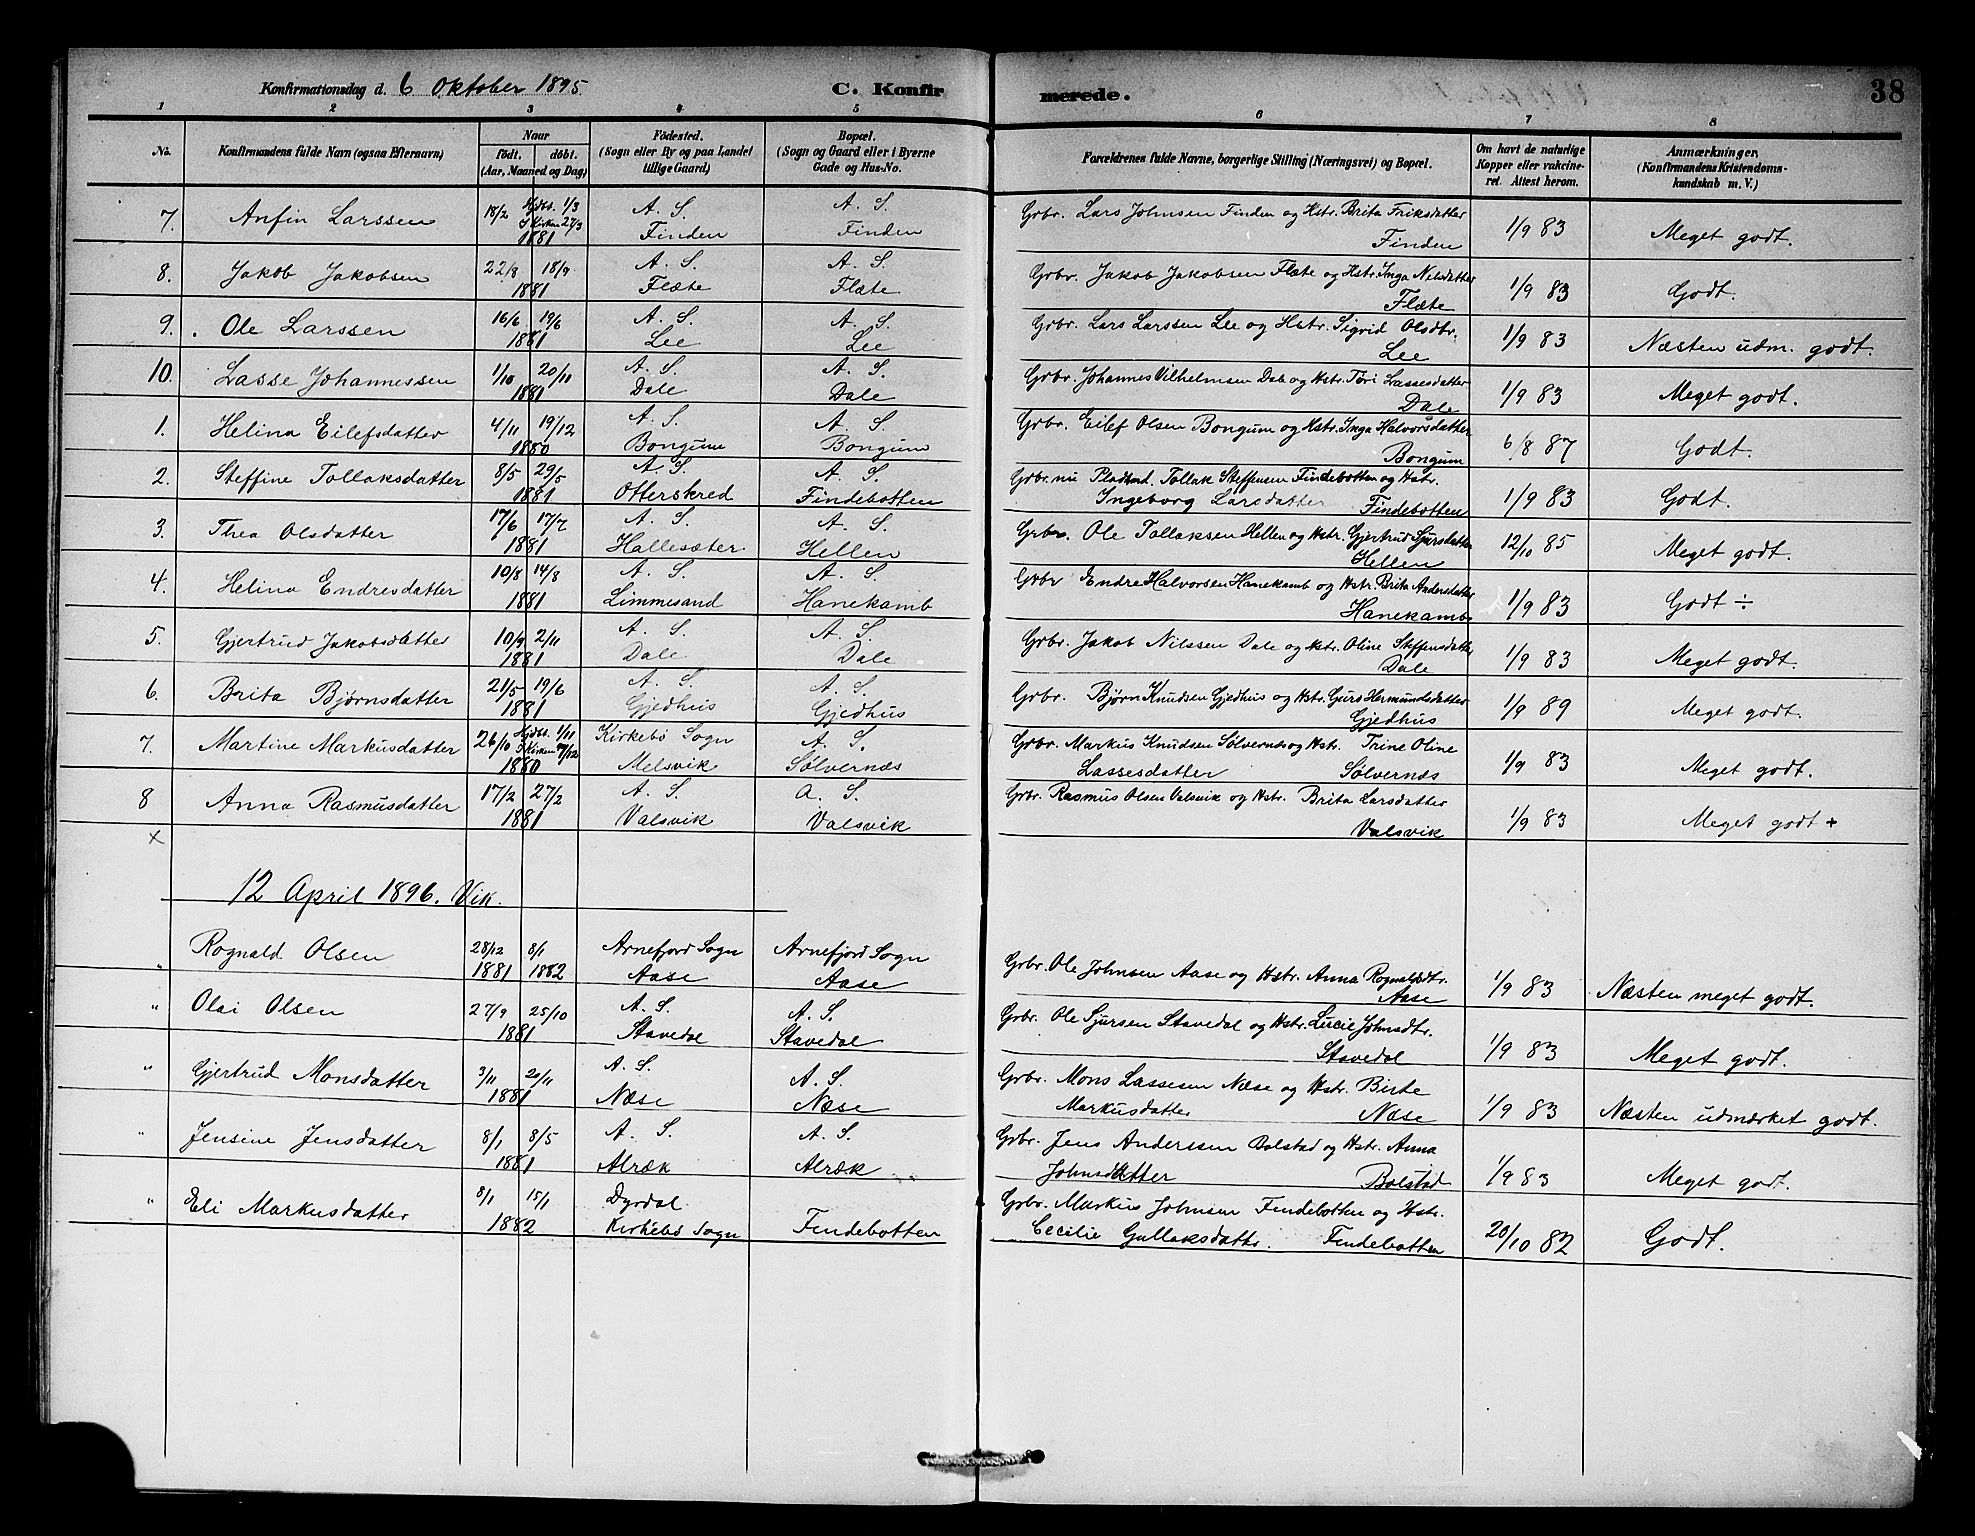 Konfirmationsdag d. 6 Oktober 1895. C. Konfirmerede. 38
1 2 3 4 5 6 7 8
No. Konfirmandens fulde Navn (ogsaa Efternavn) Naar födt. döbt. (Aar, Maaned og Dag) Födested. (Sogn eller By og paa Landet tillige Gaard) Bopæl. (Sogn og Gaard eller i Byerne Gade og Hus-No. Forældrenes fulde Navne, borgerlige Stilling (Næringsvei) og Bopæl. Om havt de naturlige Kopper eller vakcineret. Attest herom. Anmærkninger, (Konfirmandens Kristendomskundskab m. V.)
7. Anfin Larssen 18/2 Hjdbt. 1/3 I Kirken 27/3 A. S. A. S. Grbr. Lars Johnsen Finden og Hstr. Brita Eriksdatter 1/9 83 Meget godt.
1881 Finden Finden Finden
8. Jakob Jakobsen 22/8 18/9 A. S. A. S. Grbr. Jakob Jakobsen Flæte og Hstr. Inga Nelsdatter 1/9 83 Godt.
1881 Flæte Flæte Flæte
9. Ole Larssen 16/6 19/6 A. S. A. S. Grbr. Lars Larssen Lee og Hstr. Sigrid Olsdtr. 1/9 83 Næsten udm. godt.
1881 Lee Lee Lee
10. Lasse Johannessen 1/10 20/11 A. S. A. S. Grbr. Johannes Vilhelmsen Dale og Hstr. Tøri Lassesdatter 1/9 83 Meget godt.
1881 Dale Dale Dale
1. Helina Eilefsdatter 4/11 19/12 A. S. A. S. Grbr. Eilef Olsen Bongum og Hstr. Inga Halvorsdatter 6/8 87 Godt.
1880 Bongum Bongum Bongum
2. Steffine Tollaksdatter 8/5 29/5 A. S. A. S. Grbr. nu Pladsmd. Tollak Steffensen Findebotten og Hstr. 1/9 83 Godt.
1881 Otterskred Findebotten Ingeborg Larsdatter Findebotten
3. Thea Olsdatter 17/6 17/7 A. S. A. S. Grbr. Ole Tollaksen Hellen og Hstr. Gjertrud Sjursdatter 12/10 85 Meget godt.
1881 Hallesæter Hellen Hellen
4. Helina Endresdatter 10/8 14/8 A. S. A. S. Grbr Endre Halvorsen Hanekamb og Hstr. Brita Andersdatter 1/9 83 Godt ÷
1881 Limmesand Hanekamb Hanekamb
5. Gjertrud Jakobsdatter 10/9 2/11 A. S. A. S. Grbr. Jakob Nilssen Dale og Hstr. Oline Steffensdatter 1/9 83 Meget godt.
1881 Dale Dale Dale
6. Brita Bjørnsdatter 21/5 19/6 A. S. A. S. Grbr. Bjørn Knudsen Gjedhus og Hstr. Guro Hermundsdatter 1/9 89 Meget godt.
1881 Gjedhus Gjedhus Gjedhus
7. Martine Markusdatter 26/10 Hjdbt. 1/11 I Kirken /12 Kirkebö Sogn A. S. Grbr. Markus Knudsen Sølvernæs og Hstr. Trine Oline 1/9 83 Meget godt.
1880 Melsvik Sølvernæs Lassesdatter Sølvernæs
8 Anna Rasmusdatter 17/2 27/2 A. S. A. S. Grbr. Rasmus Olsen Valsvik og Hstr. Brita Larsdatter 1/9 83 Meget godt +
x 1881 Valsvik Valsvik Valsvik
12 April 1896. Vik.
" Rognald Olsen 28/12 8/1 Arnefjord Sogn Arnefjord Sogn Grbr. Ole Johnsen Aase og Hstr. Anna Rognaldsdtr. 1/9 83 Næsten meget godt.
1881 1882 Aase Aase Aase
" Olai Olsen 27/9 25/10 A. S. A. S. Grbr. Ole Sjursen Stavedal og Hstr. Lucie Johnsdtr. 1/9 83 Meget godt.
1881 Stavedal Stavedal Stavedal
" Gjertrud Monsdatter 3/11 20/11 A. S. A. S. Grbr. Mons Lassesen Næse og Hstr. Birte 1/9 83 Næsten udmærket godt.
1881 Næse Næse Markusdatter Næse
" Jensine Jensdatter 8/1 8/5 A. S. A. S. Grbr. Jens Anderssen Bolstad og Hstr. Anna 1/9 83 Meget godt.
1881 Alræk Alræk Johnsdatter Bolstad
" Eli Markusdatter 8/1 15/1 Dyrdal Grbr. Markus Johnsen Findebotten og Hstr. 20/10 82 Godt.
1882 Kirkebö Sogn Findebotten Cecilie Gullaksdattr. Findebotten